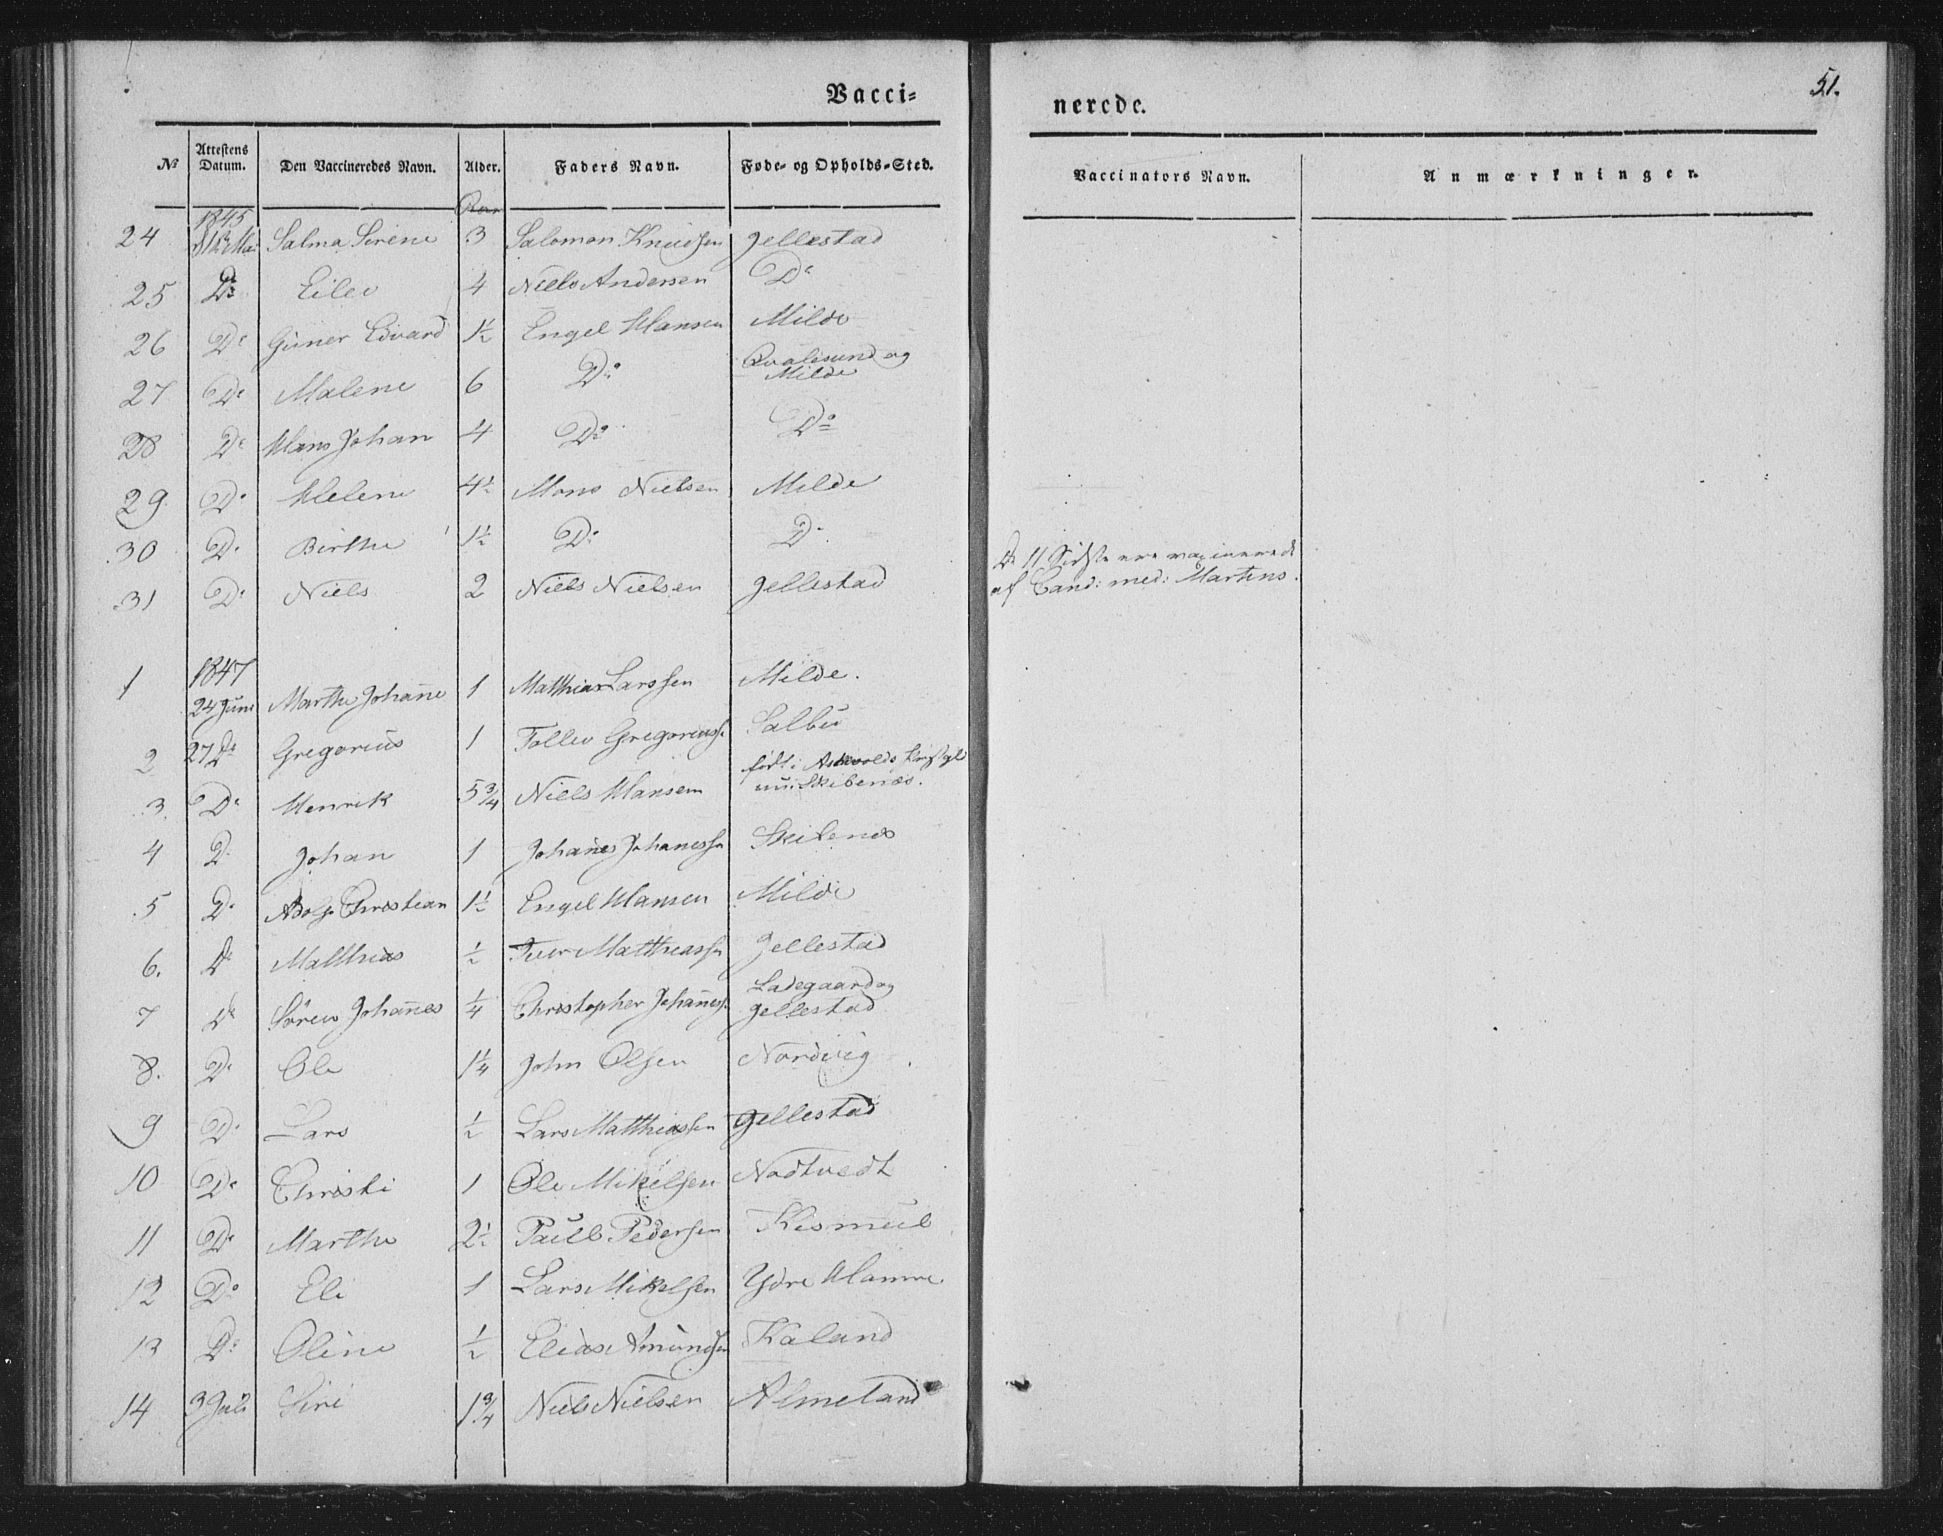 Vacci=
nerede.
51.
№ Attestens Datum. Den Vaccineredes Navn. Alder. Faders Navn. Føde- og Opholds-Sted. Vaccinators Navn. Anmærkninger.
Aar
1845
24 Mai Salma Serene 3 Salomon Knudsen Gjellestad
25 Do Eilev 4 Niels Andersen Do
26 Do Guner Edvard 1½ Engel Hansen Milde
27 Do Malene 6 Do Qvalesund og Milde
28 Do Hans Johan 4 Do Do
29 Do Helene 4½ Mons Nielsen Milde
30 Do Birthe 1½ Do Do
31 Do Niels 2 Niels Nielsen Gjellestad
De 11 Sidste ere vaxinerede
af Cand: med: Martens.
1847
1 24 Juni Marthe Johan̄e 1 Matthias Larssen Milde.
2 27 Do Gregorius 1 Tollev Gregoriuss. Salbu
3. Do Henrik 5¾ Niels Hansen født i Askvolds Præstgld
nu: Skibenæs.
4 D. Johan 1 Johan̄es Johan̄essn Skibenæs
5 D. Adolf Christian 1½ Engel Hansen Milde
6. Do Matthias ½ Iver Matthiassn Gjellestad
7 Do Søren Johan̄es ¼ Christopher Johan̄ess. Ladegaard og
Gjellestad
8. D. Ole 1¼ John Olsen Nordvig
9 D. Lars ½ Lars Matthiassen Gjellestad
10 Do Christi 1 Ole Mikelsen Nodtvedt
11 Do Marthe 2½ Paul Pedersen Kismul
12 Do Eli 1 Lars Mikelsen Ydre Hamre
13 Do Oline ½ Elias Amundsen Kaland
14 3 Juli Siri 1¾ Niels Nielsen Almeland